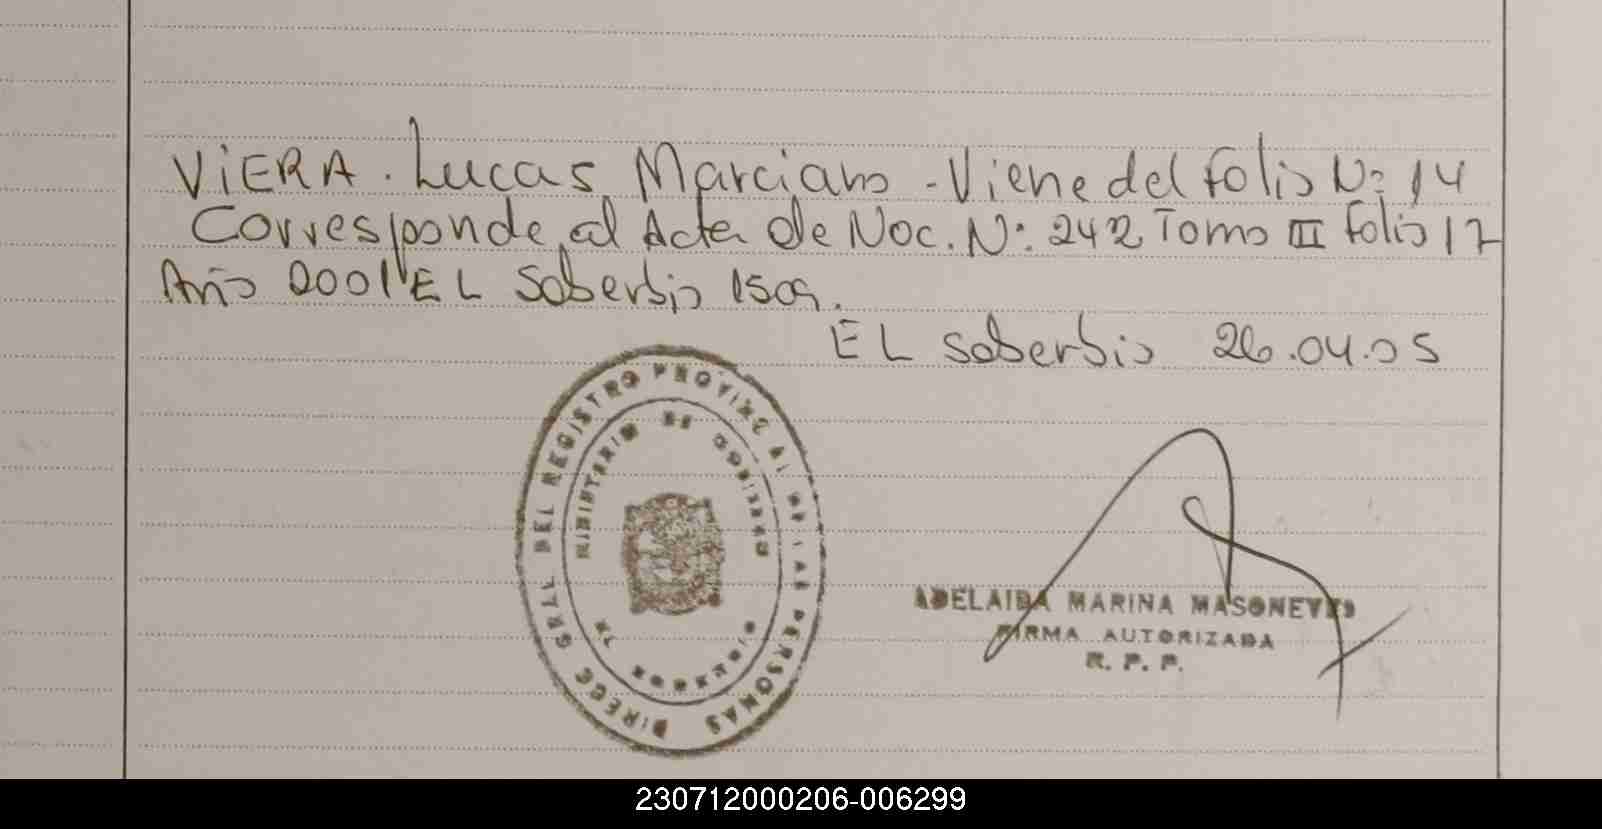 VIERA. Lucas Marciano - Viene del folio Nº 14
Corresponde al Acta de Nac. Nº 242 Tomo III folio 17
Año 2001 EL Soberbio 1509.
EL Soberbio 26.04.05
DIRECC GRAL DEL REGISTRO PROVINCIAL DE LAS PERSONAS
MINISTERIO DE GOBIERNO
MISIONES
ADELAIDA MARINA MASONEYRO
FIRMA AUTORIZADA
R. P. P.
230712000206-006299